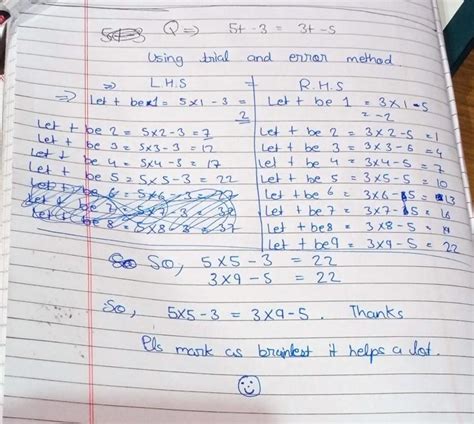 Q ⇒ 5t - 3 = 3t - 5
Using trial and error method.
⇒ L.H.S = R.H.S
⇒ Let t be 1 = 5×1 - 3 = 2
Let t be 2 = 5×2-3 = 7
Let t be 3 = 5×3-3 = 12
Let t be 4 = 5×4-3 = 17
Let t be 5 = 5×5-3 = 22
Let t be 6 = 5×6-3 = 27
Let t be 7
Let t be 8 = 5×8-3 = 37
Let t be 1 = 3×1-5 = -2
Let t be 2 = 3×2-5 = 1
Let t be 3 = 3×3-5 = 4
Let t be 4 = 3×4-5 = 7
Let t be 5 = 3×5-5 = 10
Let t be 6 = 3×6-5 = 13
Let t be 7 = 3×7-5 = 16
Let t be 8 = 3×8-5 =
Let t be 9 = 3×9-5 = 22
So, 5×5-3 = 22
3×9-5 = 22
So, 5×5-3 = 3×9-5. Thanks
Pls mark as brainlest it helps a lot.